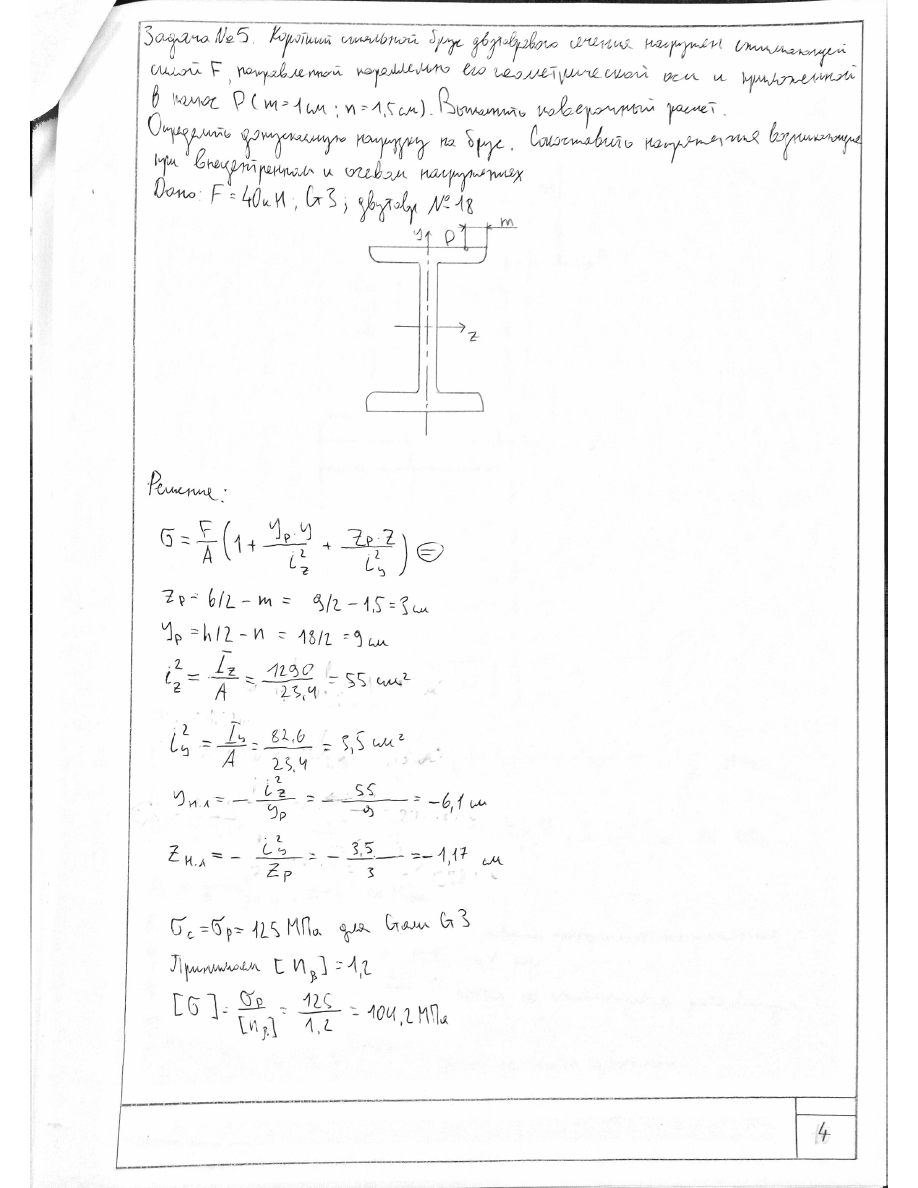 Задача №5. Короткий стальной брус двутаврового сечения нагружен сжимающей
силой F, направленной параллельно его геометрической оси и приложенной
в полюс P (m=1см; n=1,5см). Выполнить поверочный расчет.
Определить допускаемую нагрузку на брус. Сопоставить напряжения возникающие
при внецентренном и осевом нагружениях
Дано: F=40кН; Ст3; двутавр №18
y P m
z
Решение:
σ = F/A (1 + yₚ·y/i²_z + zₚ·z/i²_y) =
zₚ = b/2 - m = 9/2 - 1,5 = 3 см
yₚ = h/2 - n = 18/2 = 9 см
i²_z = I_z/A = 1290/23,4 = 55 см²
i²_y = I_y/A = 82,6/23,4 = 3,5 см²
y н.л = - i²_z/yₚ = - 55/9 = -6,1 см
z н.л = - i²_y/zₚ = - 3,5/3 = -1,17 см
σс = σр = 125 МПа для Стали Ст3
Принимаем [nв] = 1,2
[σ] = σр/[nв] = 125/1,2 = 104,2 МПа
4